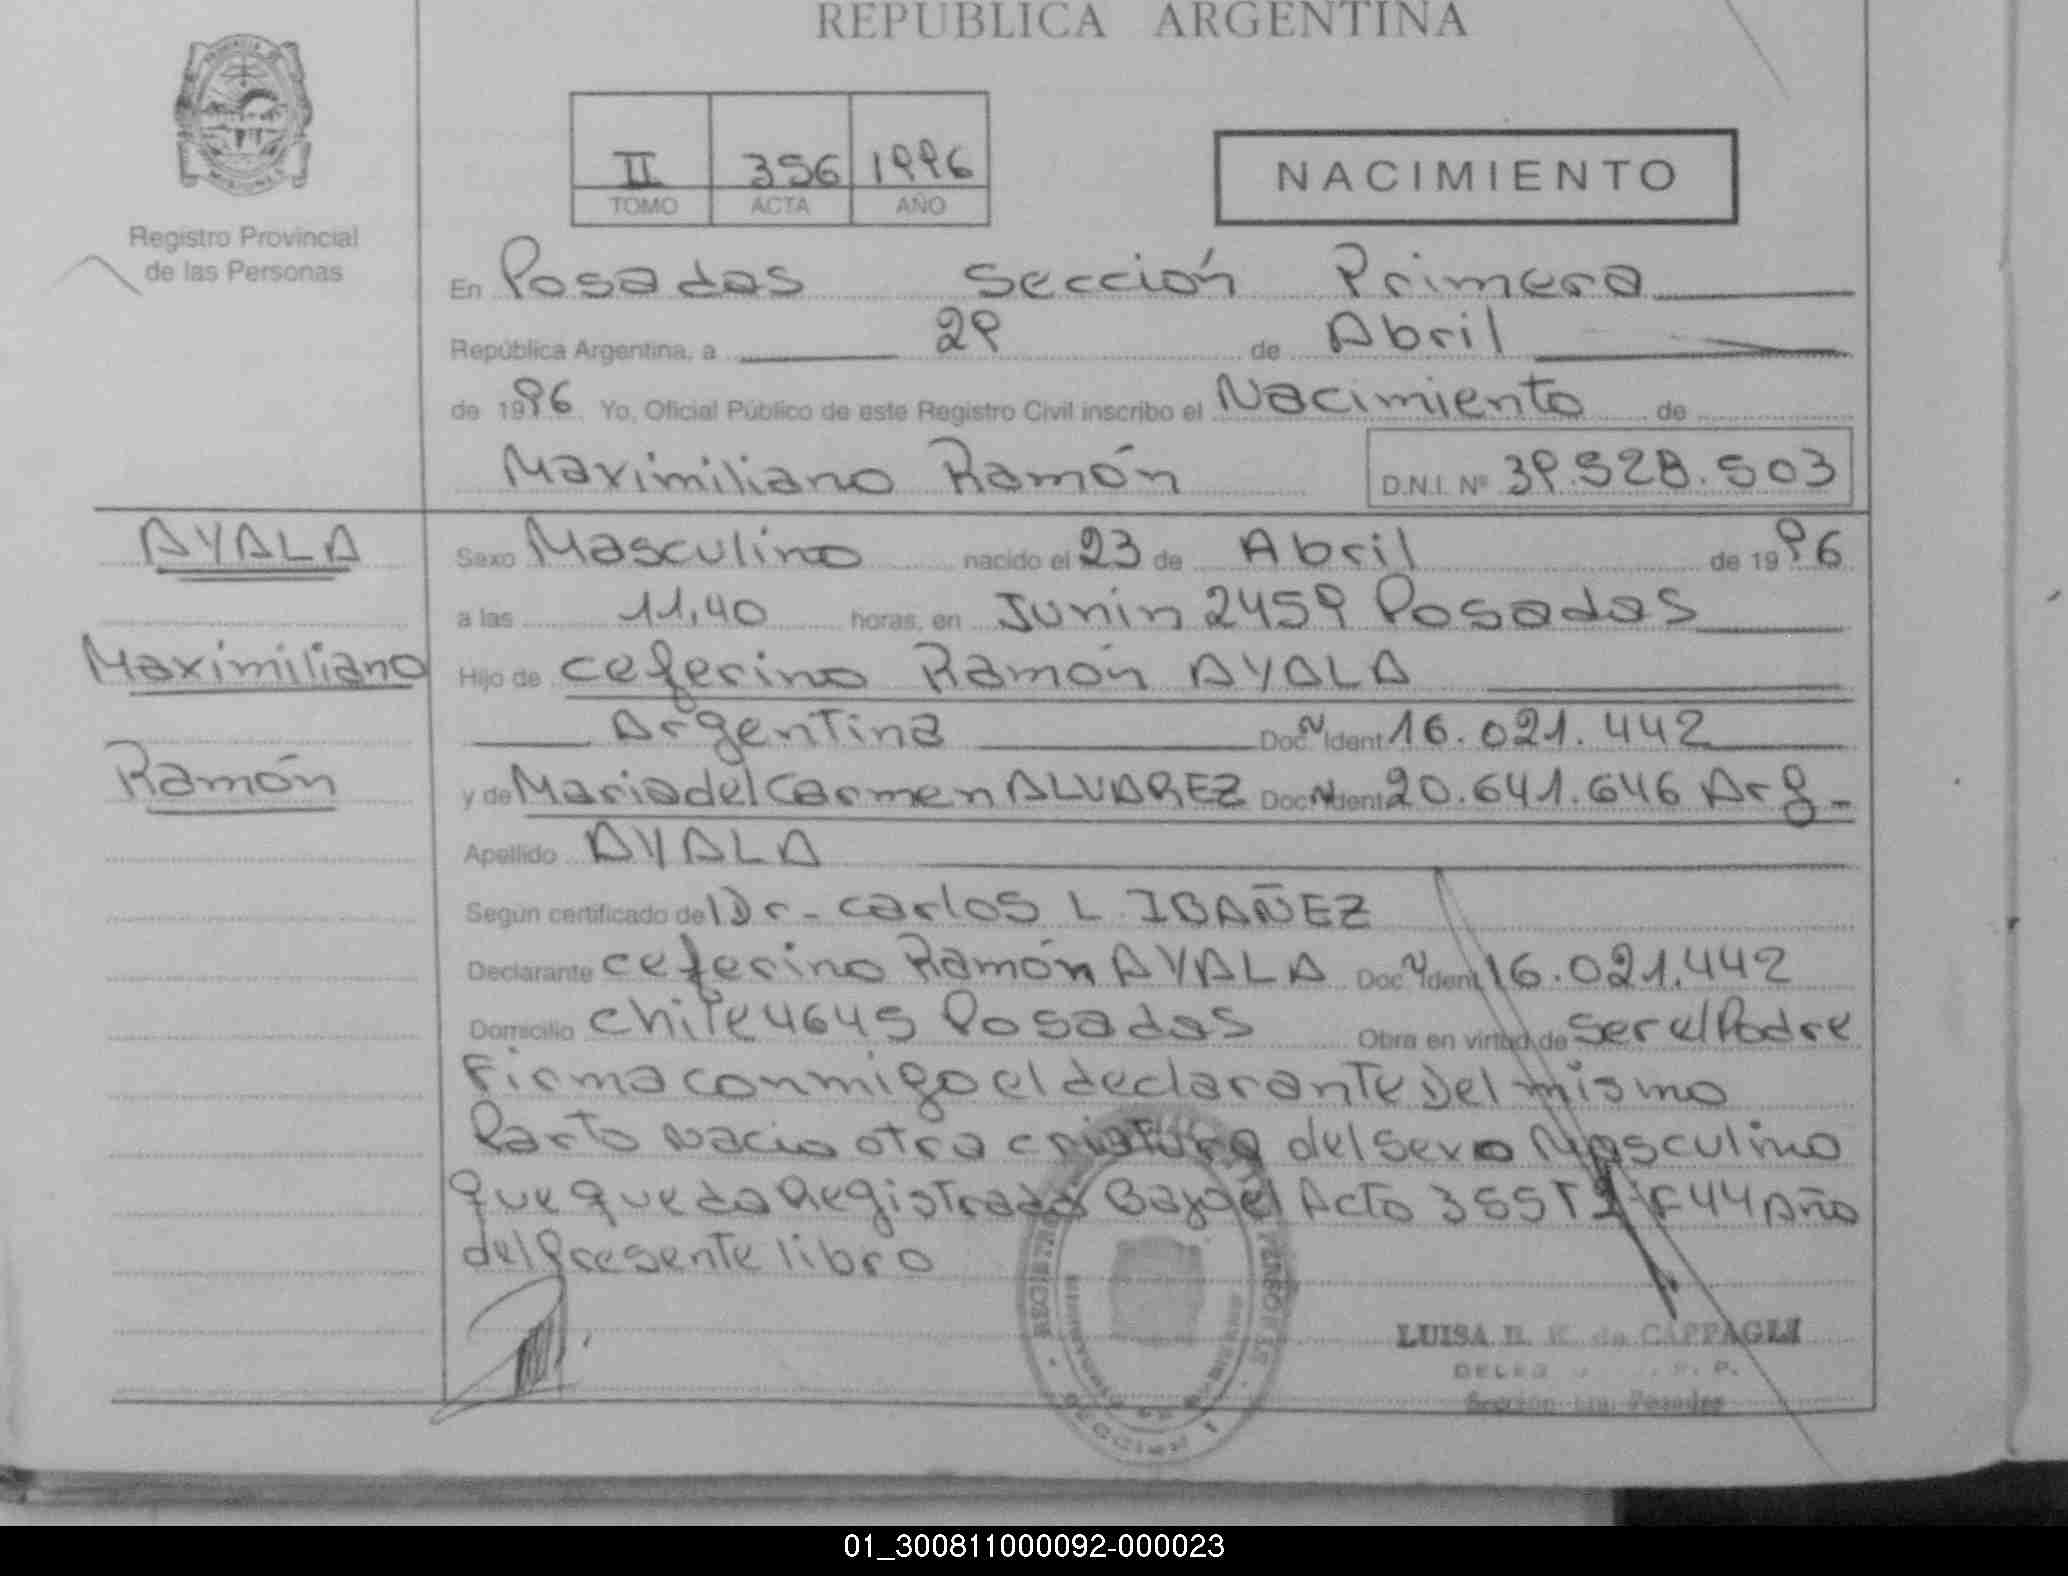 REPUBLICA ARGENTINA
PROVINCIA DE
MISIONES
Registro Provincial
de las Personas
II 356 1996
TOMO ACTA AÑO
NACIMIENTO
En Posadas Sección Primera
República Argentina, a 29 de Abril
de 1996 Yo, Oficial Público de este Registro Civil inscribo el Nacimiento de
Maximiliano Ramón D.N.I. Nº 39.528.503
AYALA
Maximiliano
Ramón
Sexo Masculino nacido el 23 de Abril de 1996
a las 11,40 horas, en Junín 2459 Posadas
Hijo de Ceferino Ramón AYALA
Argentina Doc. N Ident 16.021.442
y de Maria del Carmen ALVAREZ Doc. N Ident 20.641.646 Arg.
Apellido AYALA
Según certificado del Dr. Carlos L. IBAÑEZ
Declarante Ceferino Ramón AYALA Doc. N Ident 16.021.442
Domicilio Chile 4645 Posadas Obra en virtud de Ser el Padre
Firma conmigo el declarante Del mismo
Parto Nacio otra criatura del sexo Masculino
que queda Registrado Bajo el Acta 355 T2 F44 Año
del Presente libro
LUISA de CAPPAGLI
Sección 1ra. Posadas
01_300811000092-000023